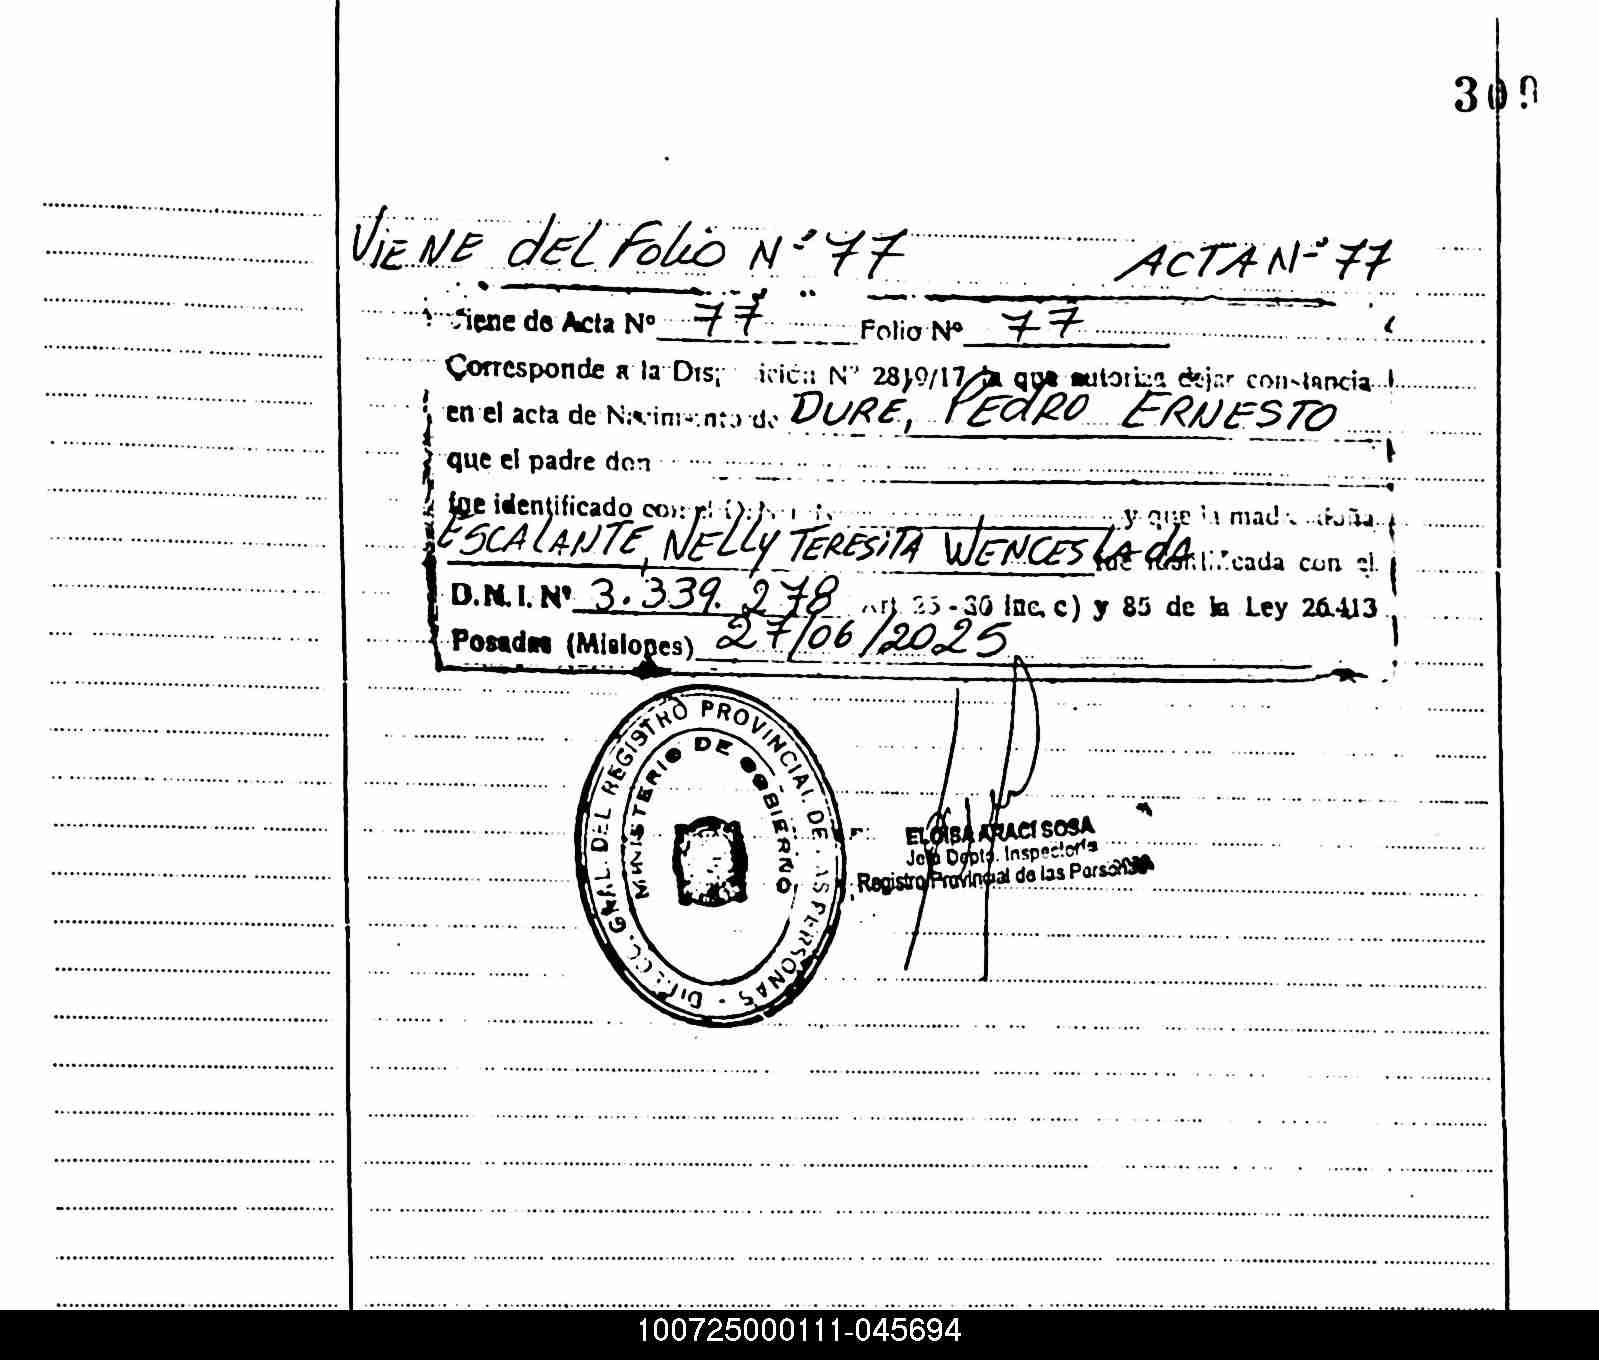 300
ViENE dEL Folio Nº 77 ACTA Nº 77
Viene de Acta Nº 77 Folio Nº 77
Corresponde a la Disposición Nº 2819/17 la que autoriza dejar constancia
en el acta de Nacimiento de DURE, PEdRO ERNESTO
que el padre don
fue identificado con el D.N.I. Nº y que la madre doña
ESCALANTE, NELLY TERESITA WENCESLAdA fue identificada con el
D.N.I. Nº 3.339.278 Art 35-36 Inc. c) y 85 de la Ley 26.413
Posadas (Misiones) 27/06/2025
DIRECC. GRAL. DEL REGISTRO PROVINCIAL DE LAS PERSONAS
MINISTERIO DE GOBIERNO
ELOISA ARACI SOSA
Jefa Depto. Inspectoría
Registro Provincial de las Personas
100725000111-045694